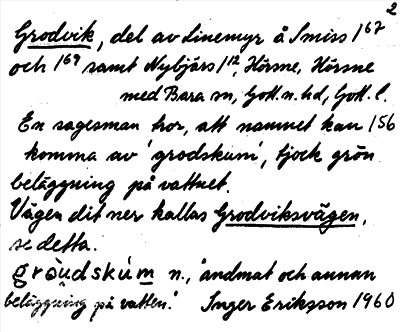 2
Grodvik, del av Linemyr å Smiss 1⁶⁷
och 1⁶⁹ samt Nybjärs 1¹², Hörsne, Hörsne
med Bara sn, Gotl. n. hd, Gotl. l.
En sagesman tror, att namnet kan 156
komma av 'grodskum', tjock grön
beläggning på vattnet.
Vägen dit ner kallas Grodviksvägen,
se detta.
gròudskúm n., 'andmat och annan
beläggning på vatten.' Inger Eriksson 1960